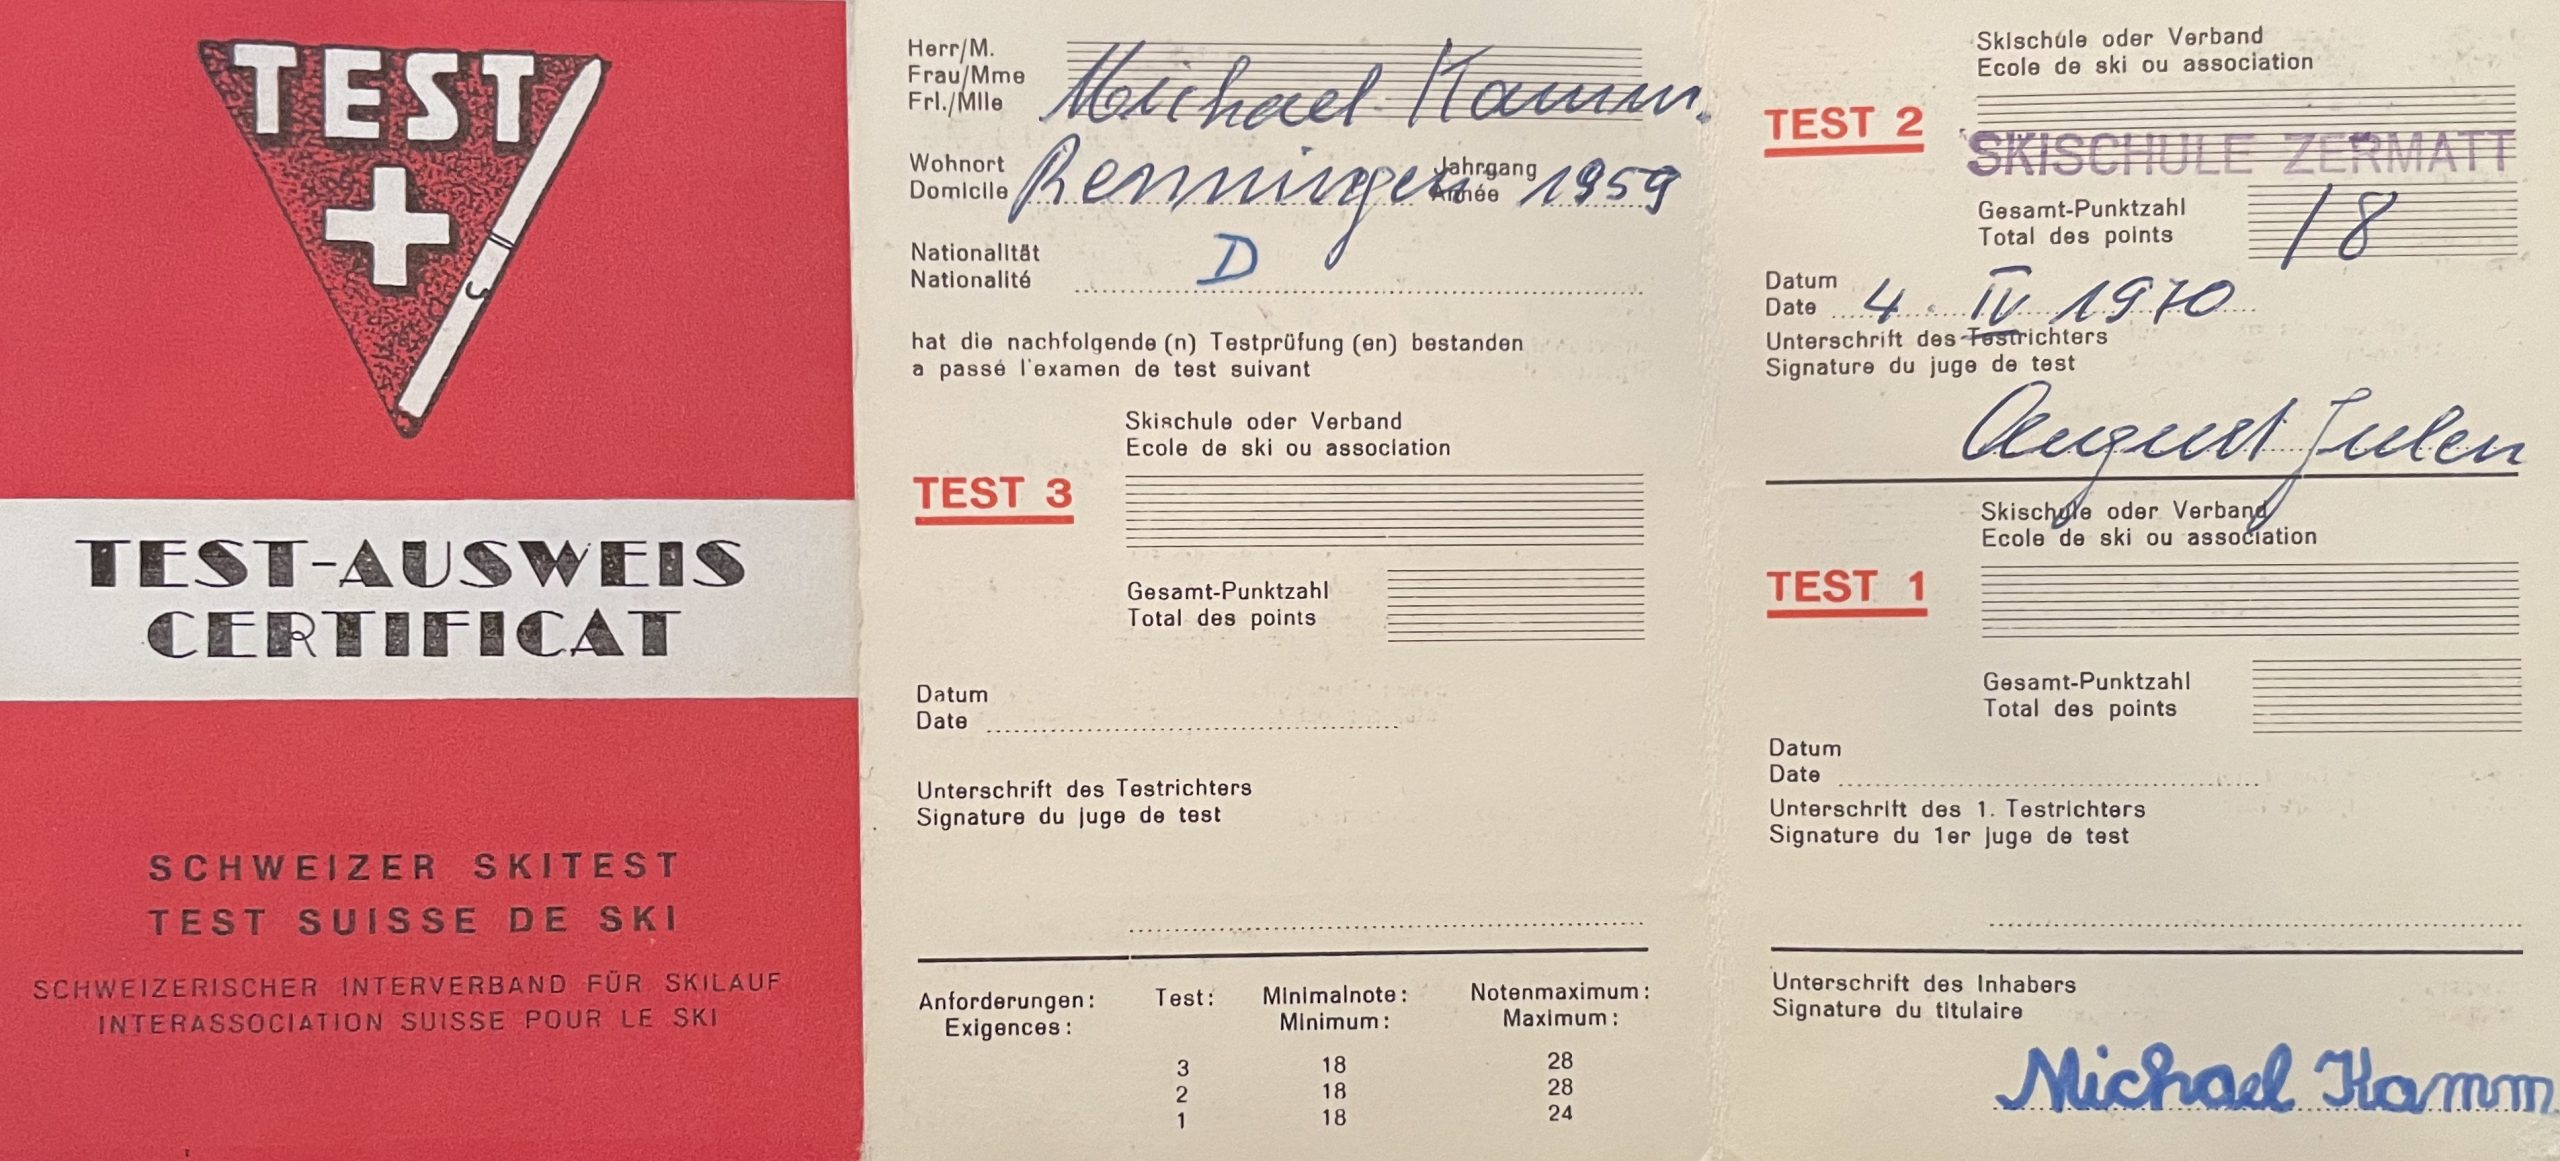 TEST
TEST-AUSWEIS
CERTIFICAT
SCHWEIZER SKITEST
TEST SUISSE DE SKI
SCHWEIZERISCHER INTERVERBAND FÜR SKILAUF
INTERASSOCIATION SUISSE POUR LE SKI
Herr/M.
Frau/Mme
Frl./Mlle
Michael Kamm.
Wohnort
Domicile
Renningen
Jahrgang
Année
1959
Nationalität
Nationalité
D
hat die nachfolgende (n) Testprüfung (en) bestanden
a passé l'examen de test suivant
Skischule oder Verband
Ecole de ski ou association
TEST 3
Gesamt-Punktzahl
Total des points
Datum
Date
Unterschrift des Testrichters
Signature du juge de test
Anforderungen: Test: Minimalnote: Notenmaximum:
Exigences: Minimum: Maximum:
3 18 28
2 18 28
1 18 24
Skischule oder Verband
Ecole de ski ou association
TEST 2
SKISCHULE ZERMATT
Gesamt-Punktzahl
Total des points
18
Datum
Date
4. IV 1970
Unterschrift des Testrichters
Signature du juge de test
August Julen
Skischule oder Verband
Ecole de ski ou association
TEST 1
Gesamt-Punktzahl
Total des points
Datum
Date
Unterschrift des 1. Testrichters
Signature du 1er juge de test
Unterschrift des Inhabers
Signature du titulaire
Michael Kamm